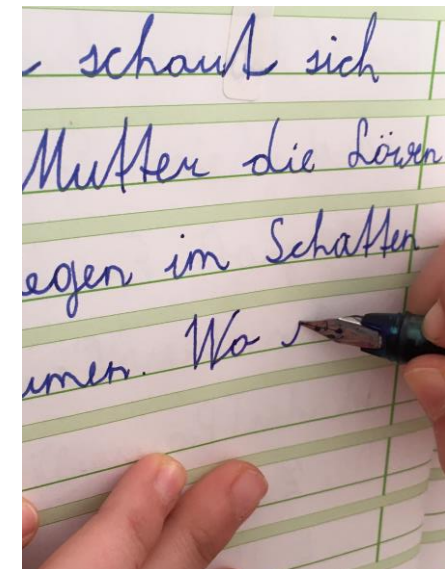 schaut sich
Mutter die Löwen
egen im Schatten
umen. Wo